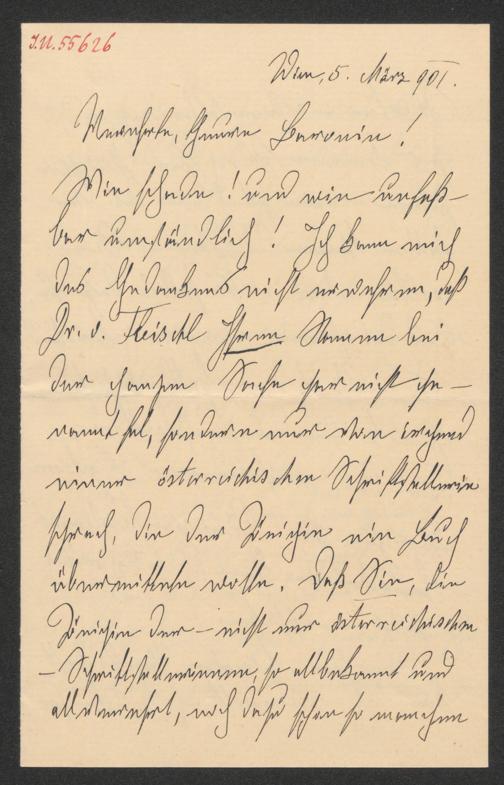 J.N. 55626
Wien, 5. März 901.
Verehrte, theure Baronin!
Wie schade! und wie unfaß-
bar umständlich! Ich kann mich
des Gedankens nicht erwehren, daß
Dr. v. Fleischl Ihren Namen bei
der ganzen Sache gar nicht ge-
nannt hat, sondern nur von irgend
einer österreichischen Schriftstellerin
sprach, die der Königin ein Buch
übermitteln wolle. Daß Sie, die
Königin der – nicht nur österreichischen
– Schriftstellerinnen, so allbekannt und
allverehrt, noch dazu schon so manchen